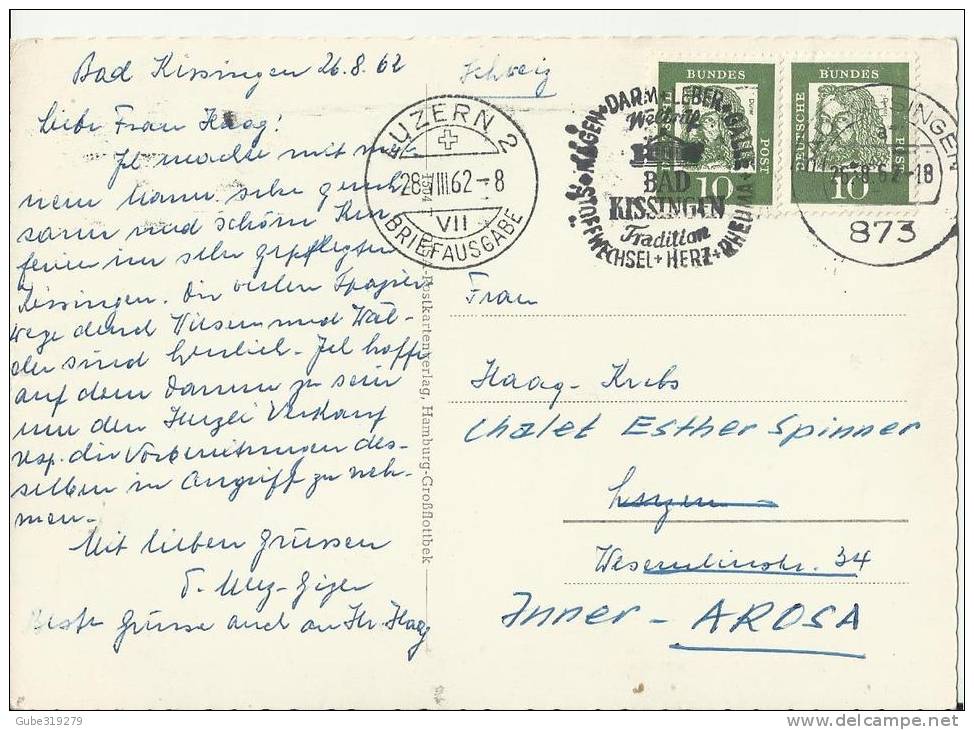 Bad Kissingen 26.8.62
Schweiz
Liebe Frau Haag!
Ich mache mit mei-
nem Mann sehr geruh-
same und schöne Kur-
ferien im sehr gepflegten
Kissingen. Die vielen Spazier-
wege durch Wiesen und Wäl-
der sind herrlich. Ich hoffe
auf dem Damm zu sein
um den Verkauf
resp. die Vorbereitungen des-
selben in Angriff zu neh-
men.
Mit lieben Grüssen
Beste Grüsse auch an Hr. Haag
LUZERN 2
28.VIII.62-8
VII
BRIEFAUSGABE
MAGEN+DARM+LEBER+GALLE
Weltruf
BAD
KISSINGEN
Tradition
RHEUMA+HERZ+STOFFWECHSEL
DEUTSCHE BUNDES POST
10
DEUTSCHE BUNDES POST
10
26.8.62-18
873
Postkartenverlag, Hamburg-Großflottbek
Frau
Haag-Krebs
Chalet Esther Spinner
Luzern
Wesemlinstr. 34
Inner-AROSA
Gube319279
delcampe.net